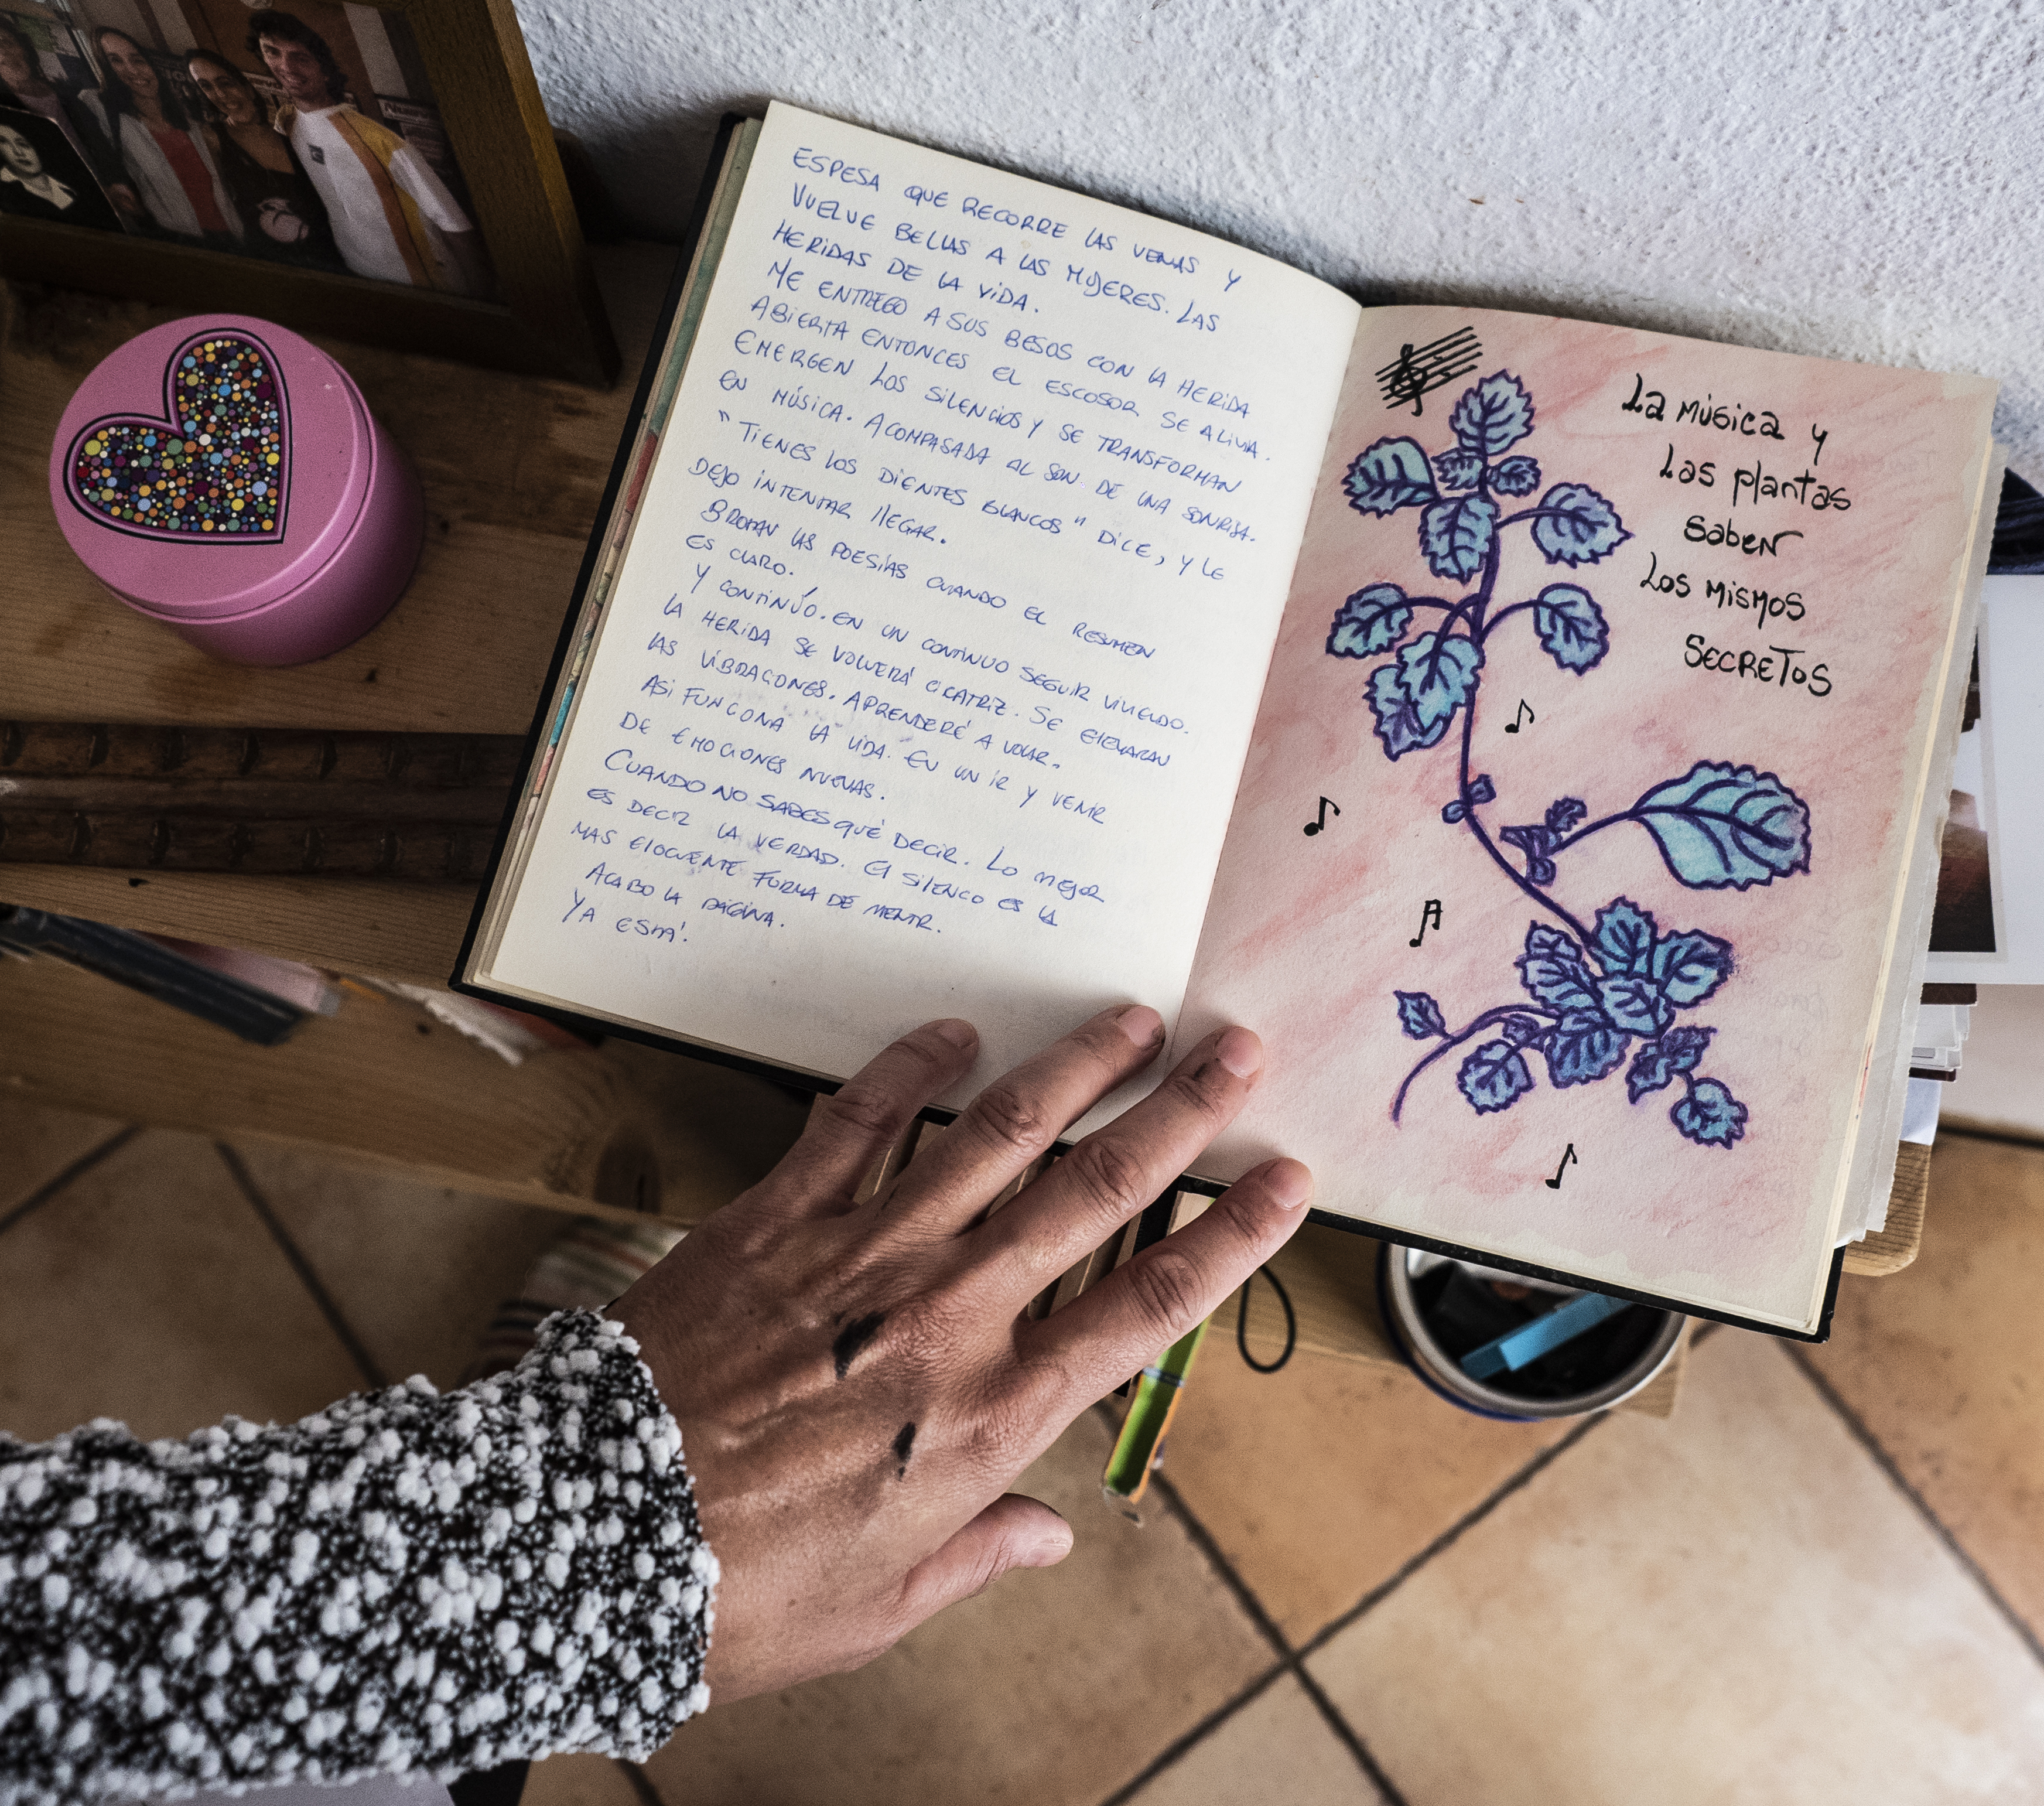 ESPESA QUE RECORRE LAS VENAS Y
VUELVE BELLAS A LAS MUJERES. LAS
HERIDAS DE LA VIDA.
ME ENTREGO A SUS BESOS CON LA HERIDA
ABIERTA ENTONCES EL ESCOSOR SE ALIVIA.
EMERGEN LOS SILENCIOS Y SE TRANSFORMAN
EN MÚSICA. ACOMPASADA AL SON DE UNA SONRISA.
"TIENES LOS DIENTES BLANCOS" DICE, Y LE
DEJO INTENTAR LLEGAR.
BROTAN LAS POESÍAS CUANDO EL RESUMEN
ES CLARO.
Y CONTINÚO. EN UN CONTINUO SEGUIR VIVIENDO.
LA HERIDA SE VOLVERÁ CICATRIZ. SE ELEVARAN
LAS VIBRACIONES. APRENDERÉ A VOLAR.
ASI FUNCIONA LA VIDA. EN UN IR Y VENIR
DE EMOCIONES NUEVAS.
CUANDO NO SABES QUÉ DECIR. LO MEJOR
ES DECIR LA VERDAD. El SILENCIO ES LA
MAS ElOCUENTE FORMA DE MENTIR.
ACABO LA PÁGINA.
YA ESTÁ!
La música y
las plantas
saben
los mismos
secretos